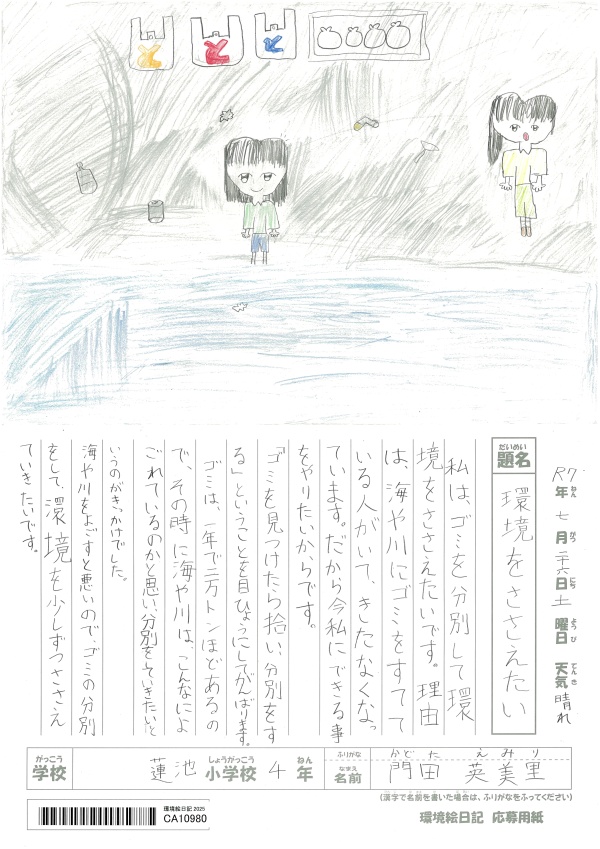 と
と
と
だいめい
題名
環境をささえたい
R7年 七月二六日 土曜日 天気 晴れ
ねん
がつ
にち
ようび
てんき
私は、ゴミを分別して環
境をささえたいです。理由
は、海や川にゴミをすてて
いる人がいて、きたなくなっ
ています。だから今私にできる事
をやりたいからです。
ゴミを見つけたら拾い、分別をす
る」ということを目ひょうにしてがんばります。
ゴミは、一年で二万トンほどあるの
で、その時に海や川は、こんなによ
ごれているのかと思い、分別をしていきたいと
いうのがきっかけでした。
海や川をよごすと悪いのでゴミの分別
をして、環境を少しずつささえ
ていきたいです。
がっこう
学校
蓮池
しょうがっこう
小学校
4
ねん
年
ふりがな
なまえ
名前
かどた えみり
門田 英美里
(漢字で名前を書いた場合は、ふりがなをふってください)
環境絵日記 2025
CA10980
環境絵日記 応募用紙